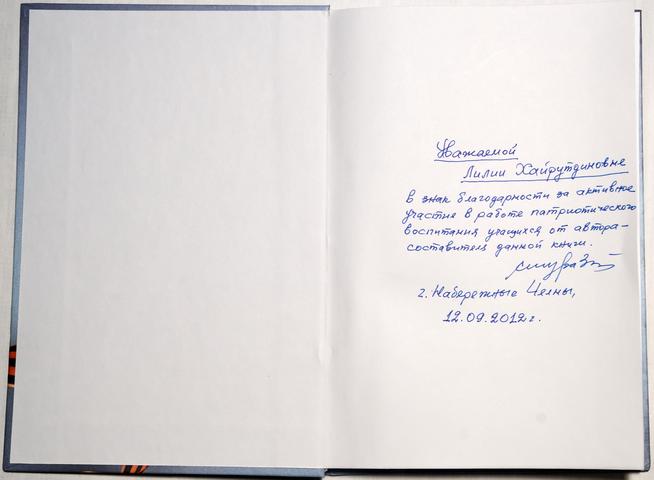 Уважаемой
Лилии Хайрутдиновне
в знак благодарности за активное
участие в работе патриотического
воспитания учащихся от автора-
составителя данной книги.
г. Набережные Челны,
12.09.2012г.